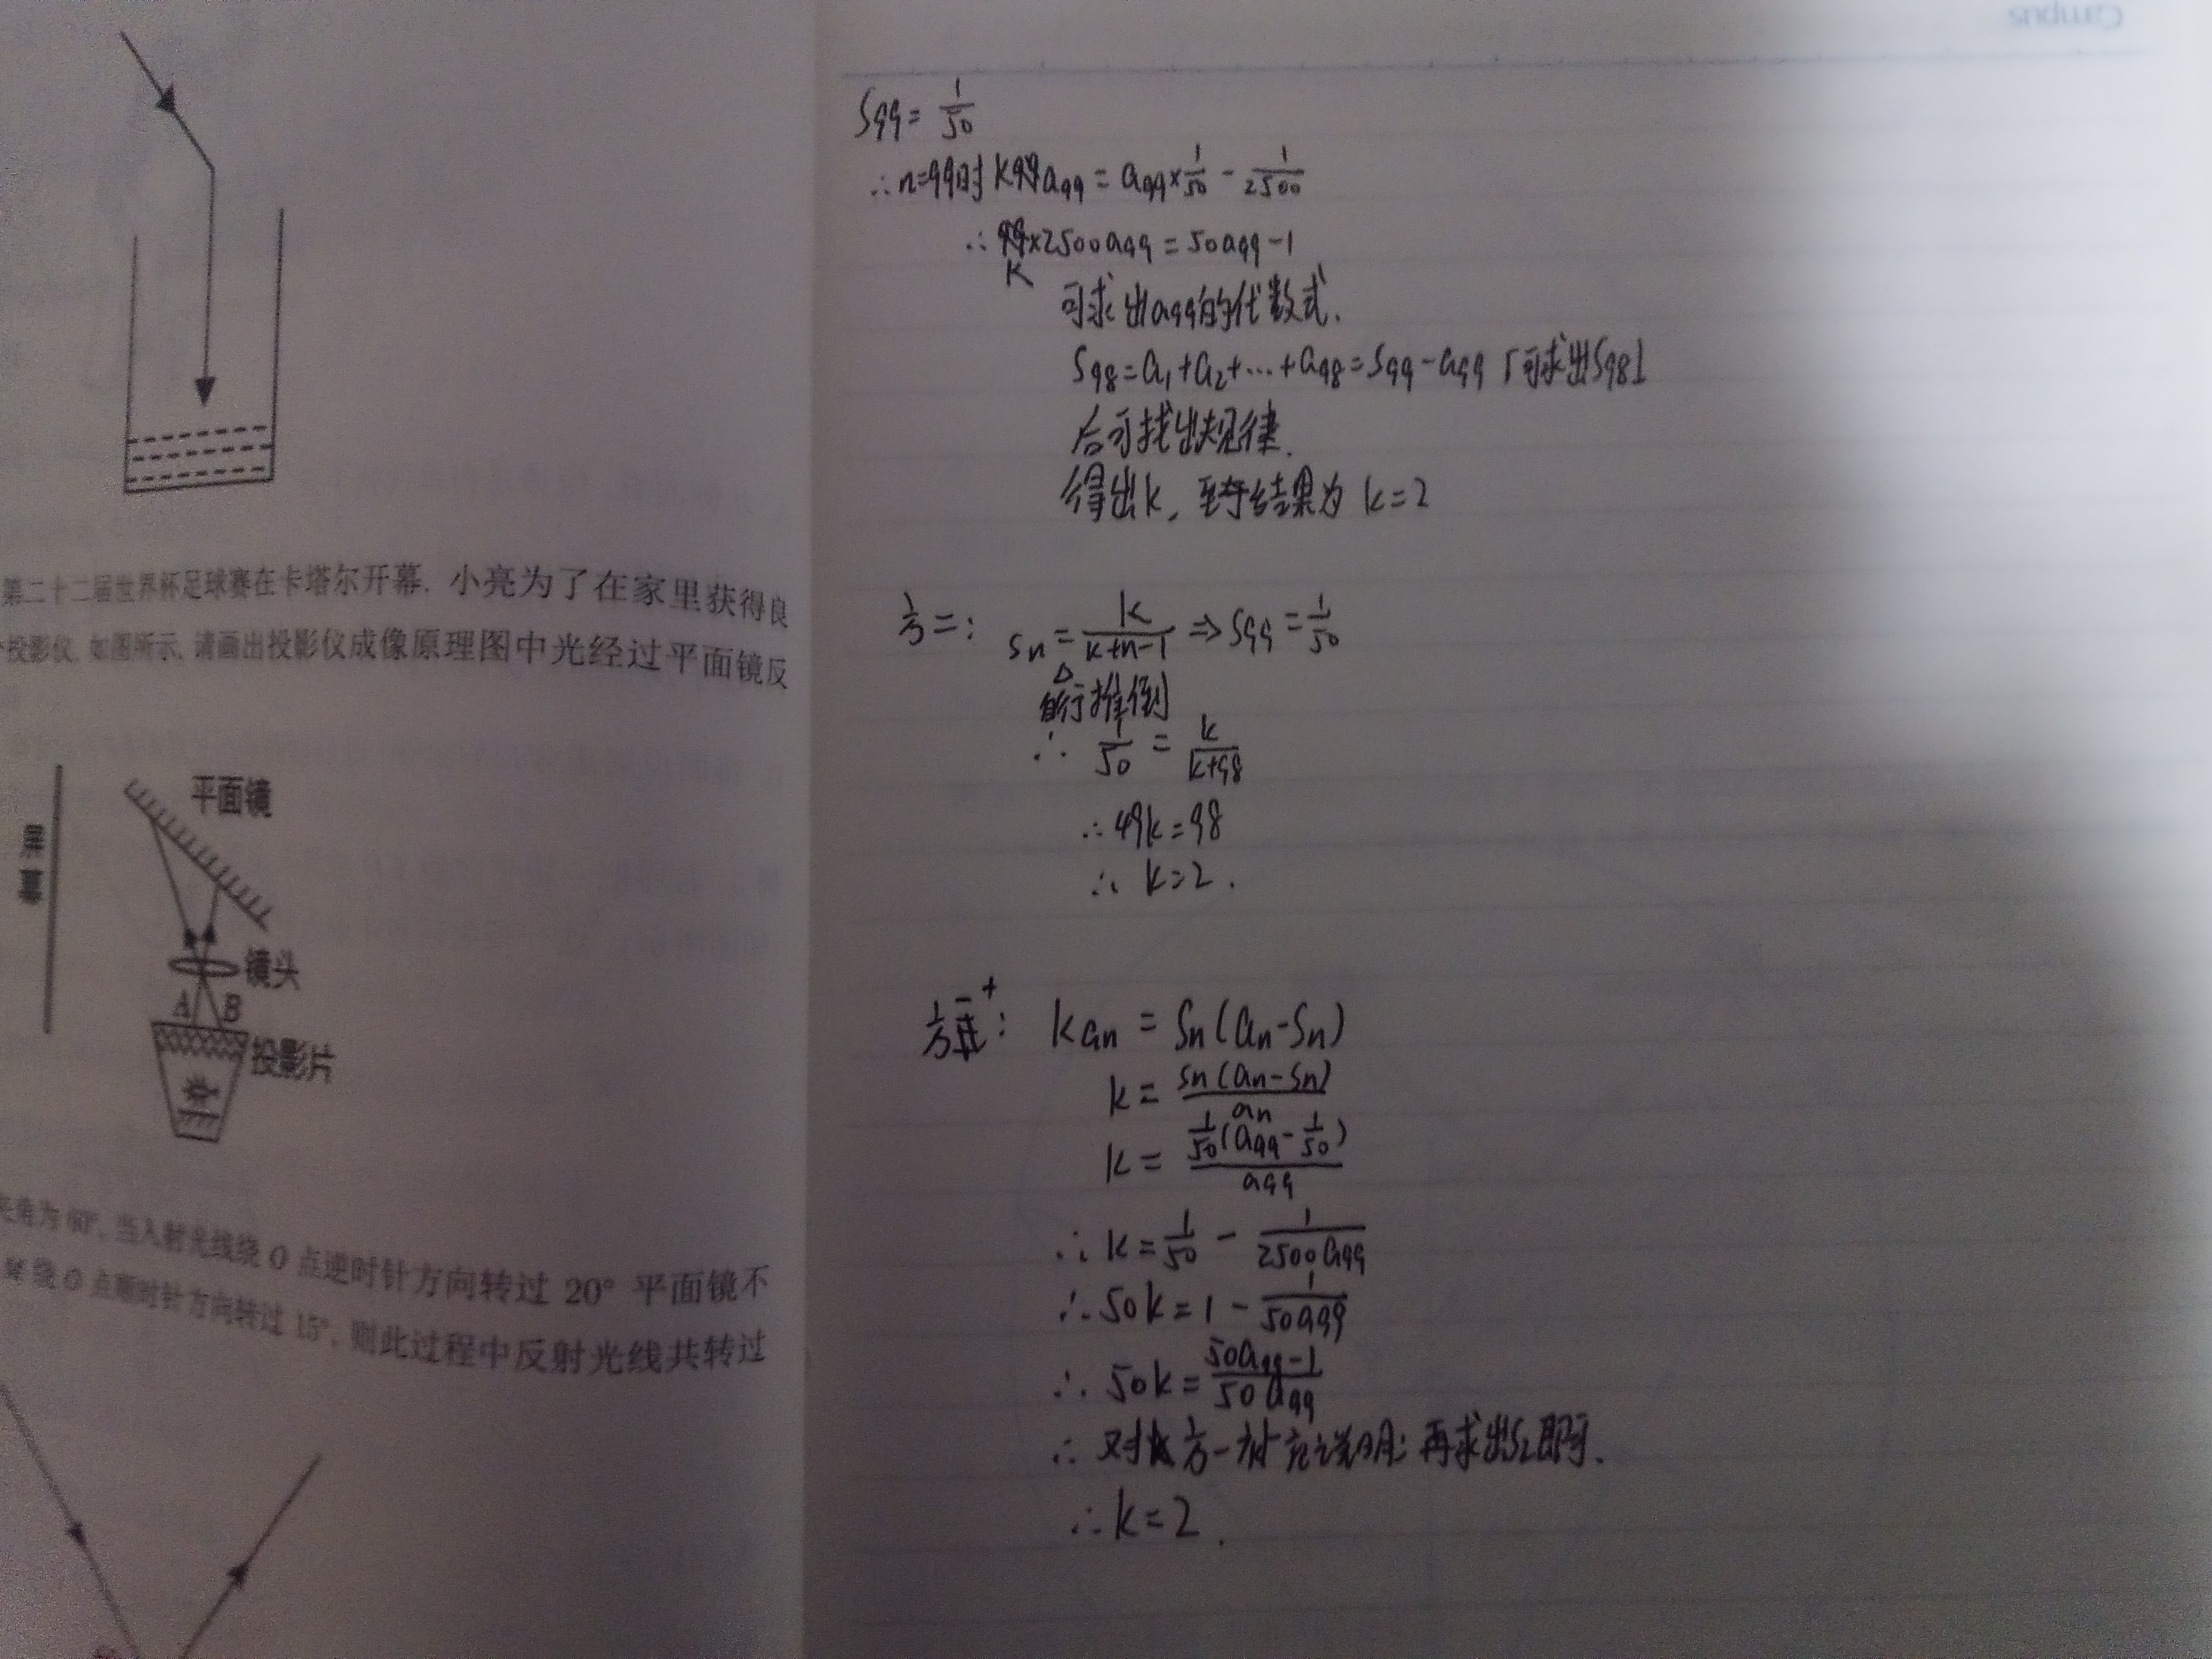 第二十二届世界杯足球赛在卡塔尔开幕. 小亮为了在家里获得良
投影仪, 如图所示, 请画出投影仪成像原理图中光经过平面镜反
平面镜
屏幕
镜头
A B
投影片
夹角为 60°, 当入射光线绕 O 点逆时针方向转过 20° 平面镜不
绕 O 点顺时针方向转过 15°, 则此过程中反射光线共转过
Campus
S99 = 1/50
∴ n=99时 k a99 = a99 × 1/50 - 1/2500
∴ k×2500a99 = 50a99 - 1
可求出a99的代数式.
S98 = a1+a2+…+a98 = S99 - a99 「可求出S98」
后可找出规律.
得出k, 至于结果为 k=2
方二: Sn = k/(k+n-1) ⇒ S99 = 1/50
自行推倒
∴ 1/50 = k/(k+98)
∴ 49k = 98
∴ k=2.
方一+: kan = Sn(an-Sn)
k = Sn(an-Sn)/an
k = 1/50(a99 - 1/50)/a99
∴ k = 1/50 - 1/(2500a99)
∴ 50k = 1 - 1/(50a99)
∴ 50k = (50a99-1)/(50a99)
∴ 对方一补充说明: 再求出即可.
∴ k=2.